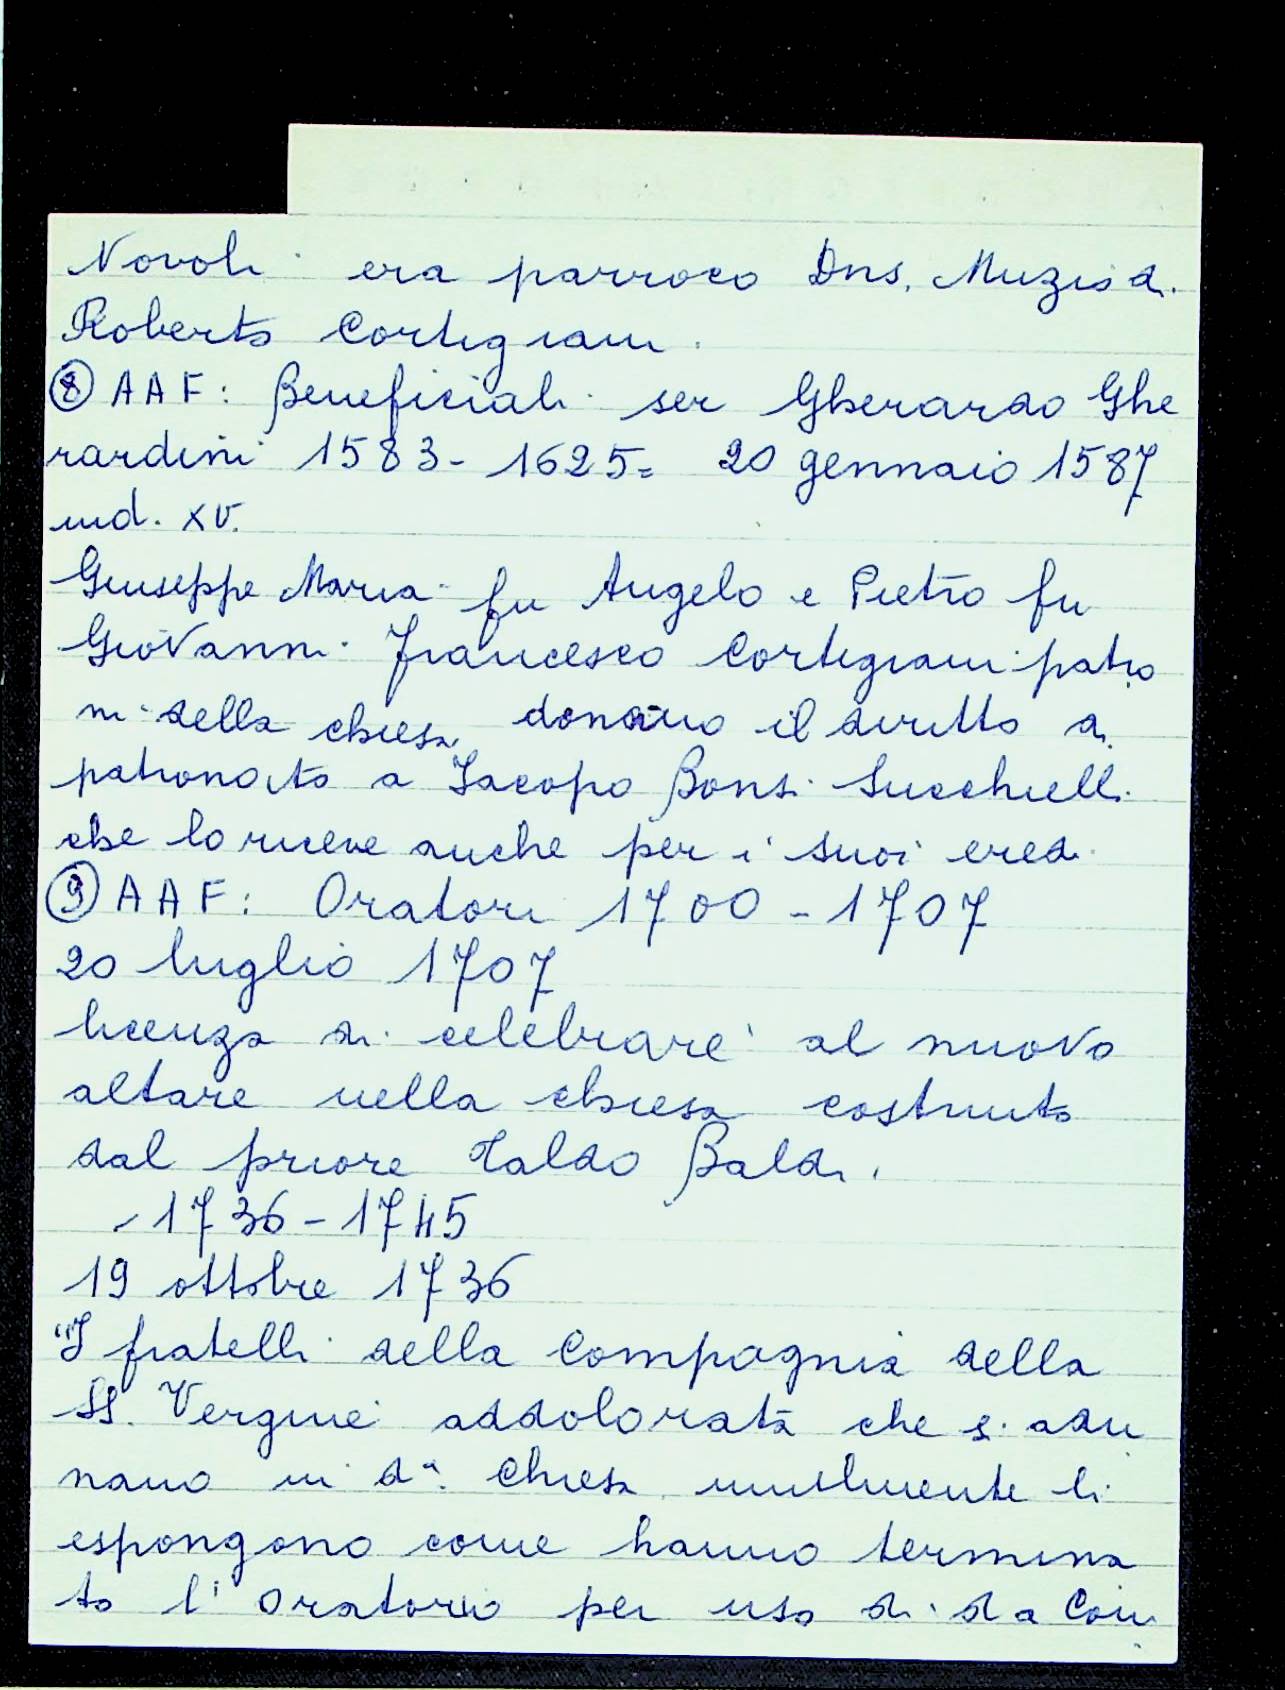 Novoli era parroco Dns. Muzio di
Roberto Cortigiani.
⑧ AAF: Beneficiali ser Gherardo Ghe
rardini 1583-1625= 20 gennaio 1587
ind. XV.
Giuseppe Maria fu Angelo e Pietro fu
Giovanni Francesco Cortigiani patro
ni della chiesa donano il diritto di
patronato a Jacopo Bonsi Succhielli
che lo riceve anche per i suoi eredi
⑨ AAF: Oratori 1700-1707
20 luglio 1707
licenza di celebrare al nuovo
altare nella chiesa costruito
dal priore Taldo Baldi.
- 1736-1745
19 ottobre 1736
"I fratelli della Compagnia della
SS. Vergine addolorata che si adu
nano in da. Chiesa umilmente li
espongono come hanno termina
to l'oratorio per uso di da Com